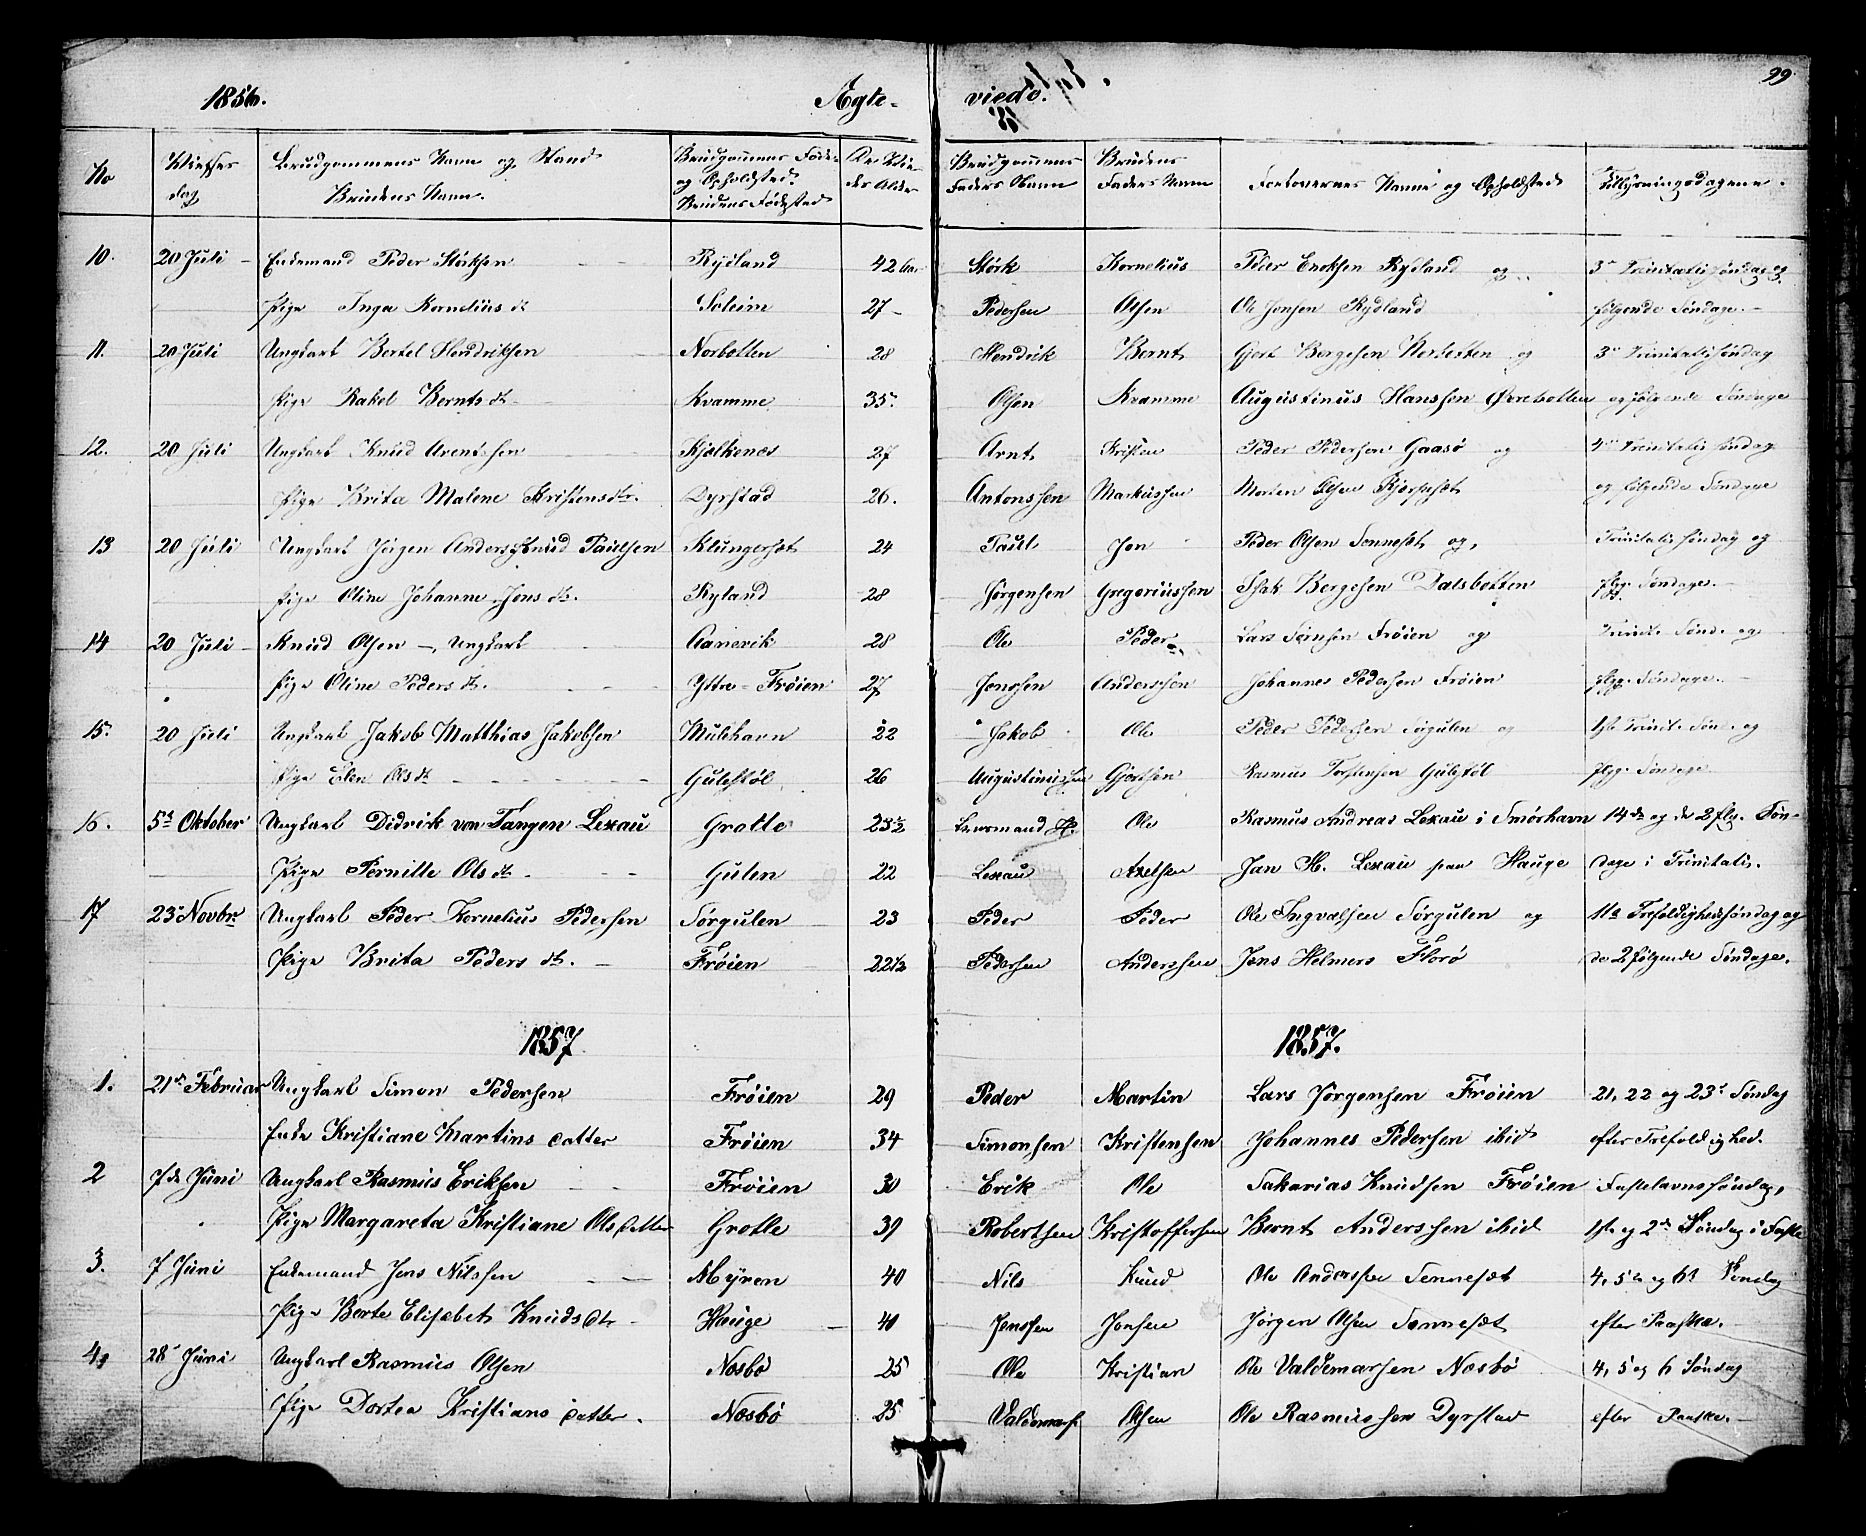 1856. Ægte- viede. 99
No Vielses Brudgommens Navn og Stand Brudgommens Føde- De Vie- Brudgommens Brudens Forlovernes Navne og Opholdsted Tillysningsdagene.
dag Brudens Navn. og Opholdsted. des Alder Faders Navn Faders Navn
Brudens Fødested
10. 20 Juli - Enkemand Peder Størksen Rydland 42 Aar Størk Kornelius Peder Enoksen Rydland og 3die Trinitatissøndag og
Pige Inga Kornelius dt Soleim 27 - Pedersen Olsen Ole Jonsen Rydland følgende Søndage. -
11. 20 Juli Ungkarl Bertel Hendriksen Norbotten 28 Hendrik Bernt Gjert Børgesen Norbotten og 3die Trinitatissøndag
Pige Rakel Bernts dt Kvamme 35 Olsen Kvamme Augustinus Hanssen Øvrebotten og følgende Søndage
12. 20 Juli Ungkarl Knud Arentssen Kjelkenes 27 Arnt Kristen Peder Pedersen Gaasø og 4de Trinitatissøndag
Pige Brita Malene Kristensdtr. Dyrstad 26. Antonssen Markussen Morten Olsen og følgende Søndage
13 20 Juli Ungkarl Jørgen Anders Knud Paulsen Klungerset 24 Paul Jon Peder Olsen Sennesæt og, Trinitatissøndag og
Pige Oline Johanne Jons dt. Ryland 28 Jørgensen Gregoriussen Isak Børgesen Dalsbotten flg. Søndage. -
14 20 Juli - Knud Olsen -, Ungkarl Aanevik 28 Ole Peder Lars Simsen Frøien og Trinit. Sønd. og
Pige Oline Peders dt. Yttre-Frøien 27 Jonssen Anderssen Johannes Pedersen Frøien flg. Søndage. -
15. 20 Juli Ungkarl Jakob Matthias Jakobsen Mulehavn 22 Jakob Ole Peder Pedersen Sørgulen og 1ste Trinit. Sønd. og
Pige Elen Ols dt Gulestøl 26 Augustinussen Gjertsen Rasmus Torstensen Gulestøl flg. Søndage
16. 5te Oktober Ungkarl Didrik von Tangen Lexau Grotle 23½ Lensmand H. Ole Rasmus Andreas Lexau i Smørhavn 14de og de 2 flg. Søn-
Pige Pernille Ols dt Gulen 22 Lexau Axelsen Jan H. Lexau paa Hauge dage i Trinitatis.
17 23de Novbr. Ungkarl Peder Kornelius Pedersen Sørgulen 23 Peder Peder Ole Ingvalsen Sørgulen og 11te Trefoldighedssøndag og
Pige Brita Peders dt. Frøien 22½ Pedersen Anderssen Jens Helmers Florø de 2 følgende Søndage.
1857 1857.
1. 21de Februar Ungkarl Simon Pedersen Frøien 29 Peder Martin Lars Jørgensen Frøien 21, 22 og 23de Søndag
Enke Kristiane Martins datter Frøien 34 Simonsen Kristensen Johannes Pedersen ibid efter Trefoldighed.
2 7de Juni Ungkarl Rasmus Eriksen Frøien 30 Erik Ole Sakarias Knudsen Frøien Fastelavnssøndag,
Pige Margareta Kristiane Olsdatter Grotle 39 Robertsen Kristoffersen Bernt Anderssen ibid 1ste og 2den Søndag i Faste
3. 7 Juni Enkemand Jens Nilssen Myren 40 Nils Knud Ole Anderssen Sennesæt 4, 5te og 6te Søndag
Pige Berte Elisabet Knudsdtr Hauge 40 Jenssen Jonsen Jørgen Olsen Sennesæt efter Paaske.
4 28de Juni Ungkarl Rasmus Olsen Nesbø 25 Ole Kristian Ole Valdemarsen Nesbø 4, 5 og 6 Søndag
Pige Dortea Kristians datter. Nesbø 25 Valdemars. Olsen Ole Rasmussen Dyrstad efter Paaske. -